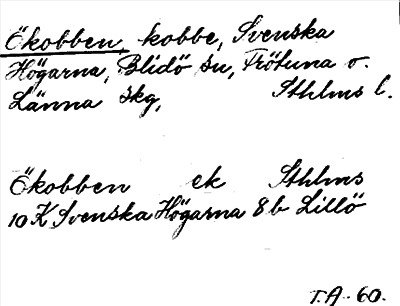 Ökobben, kobbe, Svenska
Högarna, Blidö sn, Frötuna o.
Länna skg, Sthlms l.
Ökobben ek Sthlms
10 K Svenska Högarna 8b Lillö
T.A. 60.